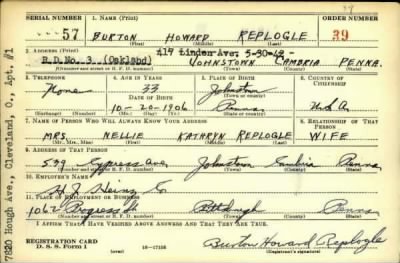 39
SERIAL NUMBER 1. NAME (Print) ORDER NUMBER
57 BURTON HOWARD REPLOGLE 39
(First) (Middle) (Last)
2. ADDRESS (Print) 417 Linden Ave: 5-30-42-
R.D. No. 3 (Oakland) JOHNSTOWN CAMBRIA PENNA.
(Number and street or R. F. D. number) (Town) (County) (State)
3. TELEPHONE 4. AGE IN YEARS 5. PLACE OF BIRTH 6. COUNTRY OF CITIZENSHIP
None 33 Johnstown
DATE OF BIRTH (Town or county)
10-20-1906 Penna. U.S.A.
(Exchange) (Number) (Mo.) (Day) (Yr.) (State or country)
7. NAME OF PERSON WHO WILL ALWAYS KNOW YOUR ADDRESS 8. RELATIONSHIP OF THAT PERSON
MRS. NELLIE KATHRYN REPLOGLE WIFE
(Mr., Mrs., Miss) (First) (Middle) (Last)
9. ADDRESS OF THAT PERSON
579 Cypress Ave. Johnstown Cambria Penna
(Number and street or R. F. D. number) (Town) (County) (State)
10. EMPLOYER'S NAME
H J Heinz Co
11. PLACE OF EMPLOYMENT OR BUSINESS
1062 Progress St Pittsburgh Penna
(Number and street or R. F. D. number) (Town) (County) (State)
I AFFIRM THAT I HAVE VERIFIED ABOVE ANSWERS AND THAT THEY ARE TRUE.
REGISTRATION CARD
D. S. S. Form 1 (over) 16-17105 Burton Howard Replogle
(Registrant's signature)
7820 Hough Ave., Cleveland, O., Apt. #1